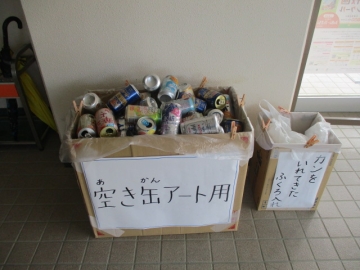 あ かん
空き缶アート用
カンを
いれてきた
ふくろ入れ